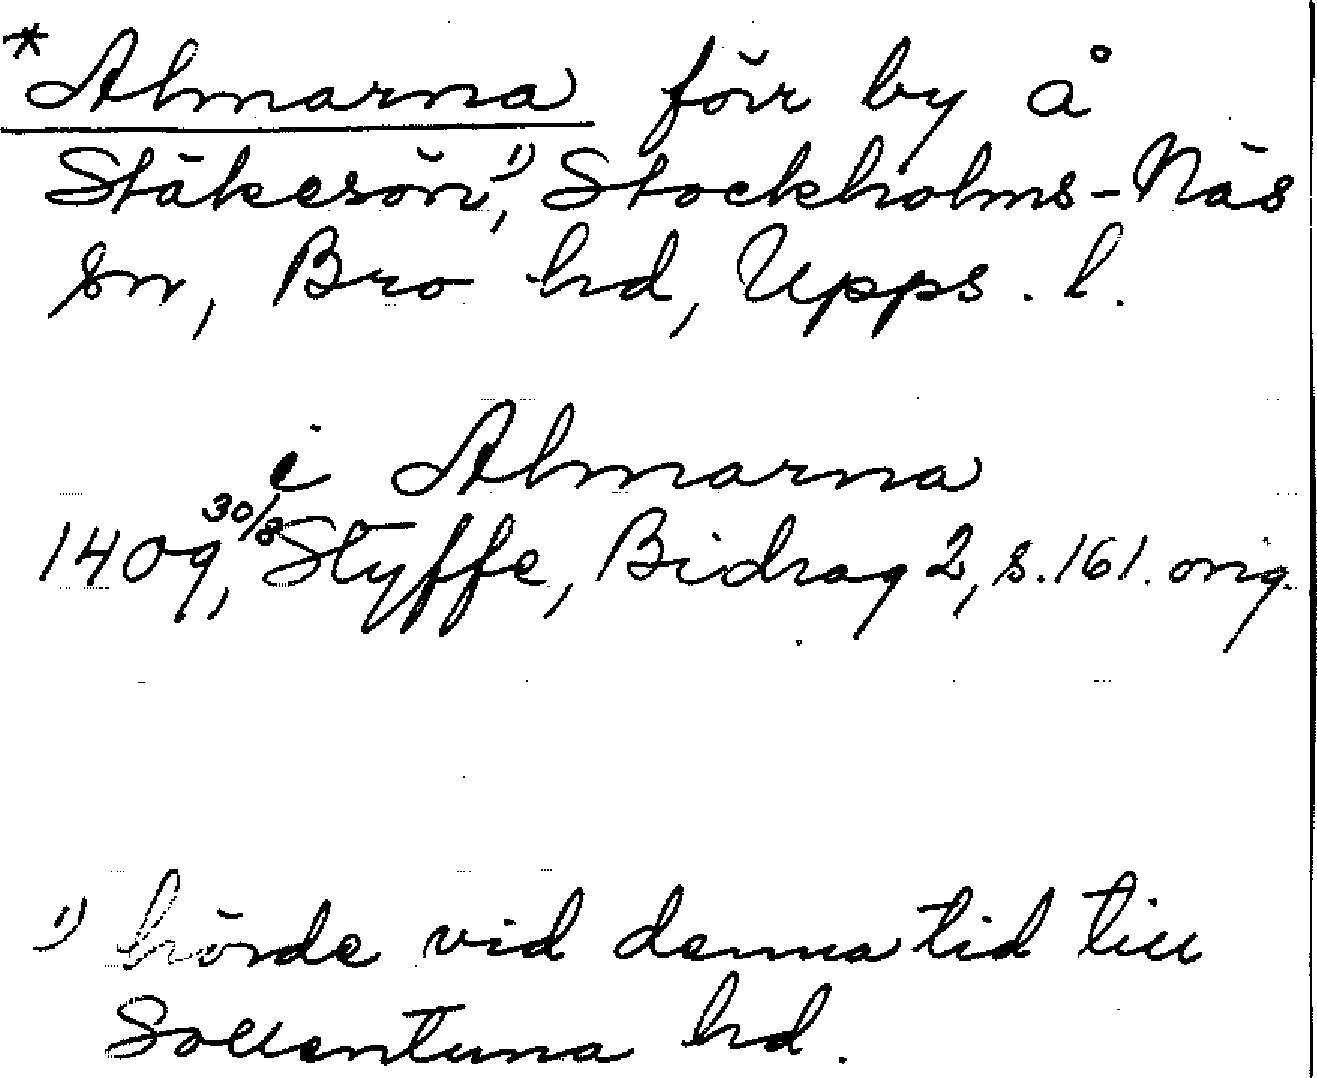 *Almarna förr by å
Stäkesön,¹⁾ Stockholms-Näs
sn, Bro hd, Upps. l.
i Almarna
1409 30/8, Styffe, Bidrag 2, s. 161. orig.
¹⁾ hörde vid denna tid till
Sollentuna hd.